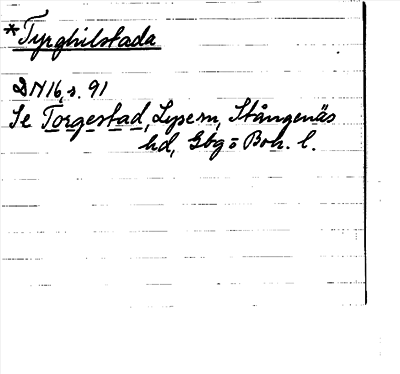 *Tyrghilstada
DN16, s. 91
Se Torgestad, Lyse sn, Stångenäs
hd, Gbg o Boh. l.